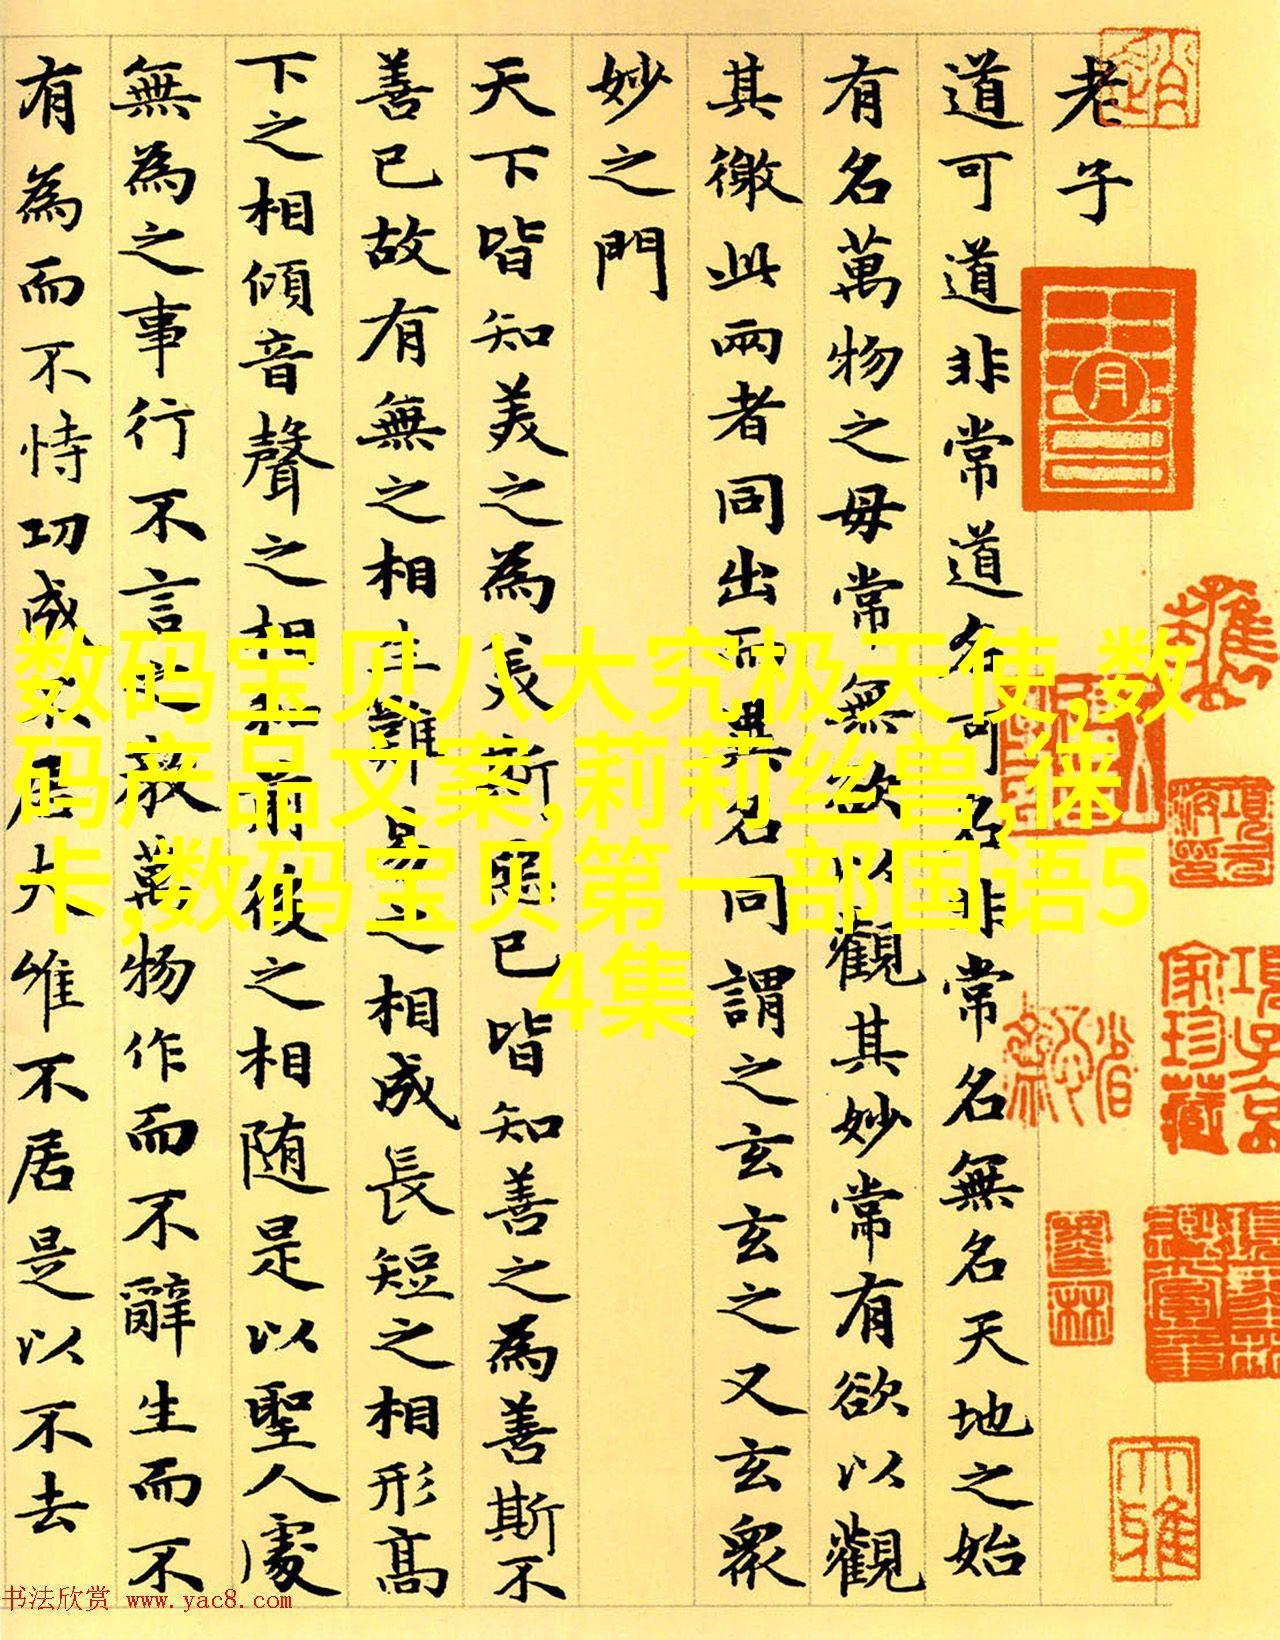 老子
道可道非常道名可名非常名無名天地之始
有名萬物之毋常無欲以觀其妙常有欲以觀
其徼此兩者同出而異名同謂之玄玄之又玄衆
妙之門
天下皆知美之為美斯惡已皆知善之為善斯不
善已故有無之相生難易之相成長短之相形高
下之相傾音聲之相和前後之相随是以聖人處
無為之事行不言之教萬物作而不辭生而不
有為而不恃功成不居夫惟不居是以不去
数码宝贝八大究极天使,数
码产品文案,莉莉丝兽,徕
卡,数码宝贝第一部国语5
4集
項子京
家珍藏
书法欣赏 www.yac8.com